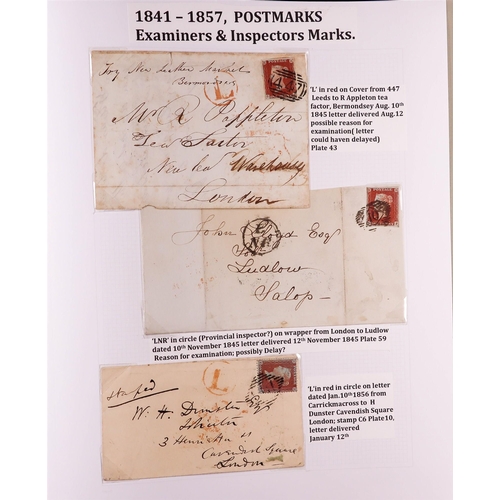 1841 – 1857, POSTMARKS
Examiners & Inspectors Marks.
Leather Market
Bermondsey
L
447
Mr R Appleton
Tea Factor
New Warehouse
London
'L' in red on Cover from 447
Leeds to R Appleton tea
factor, Bermondsey Aug. 10th
1845 letter delivered Aug.12
possible reason for
examination( letter
could haven delayed)
Plate 43
John Esq
L
NR
Ludlow
Salop
'LNR' in circle (Provincial inspector?) on wrapper from London to Ludlow
dated 10th November 1845 letter delivered 12th November 1845 Plate 59
Reason for examination; possibly Delay?
stamped
L
W. H. Dunster
3 Henrietta St
Cavendish Square
London
'L'in red in circle on letter
dated Jan.10th1856 from
Carrickmacross to H
Dunster Cavendish Square
London; stamp C6 Plate10,
letter delivered
January 12th